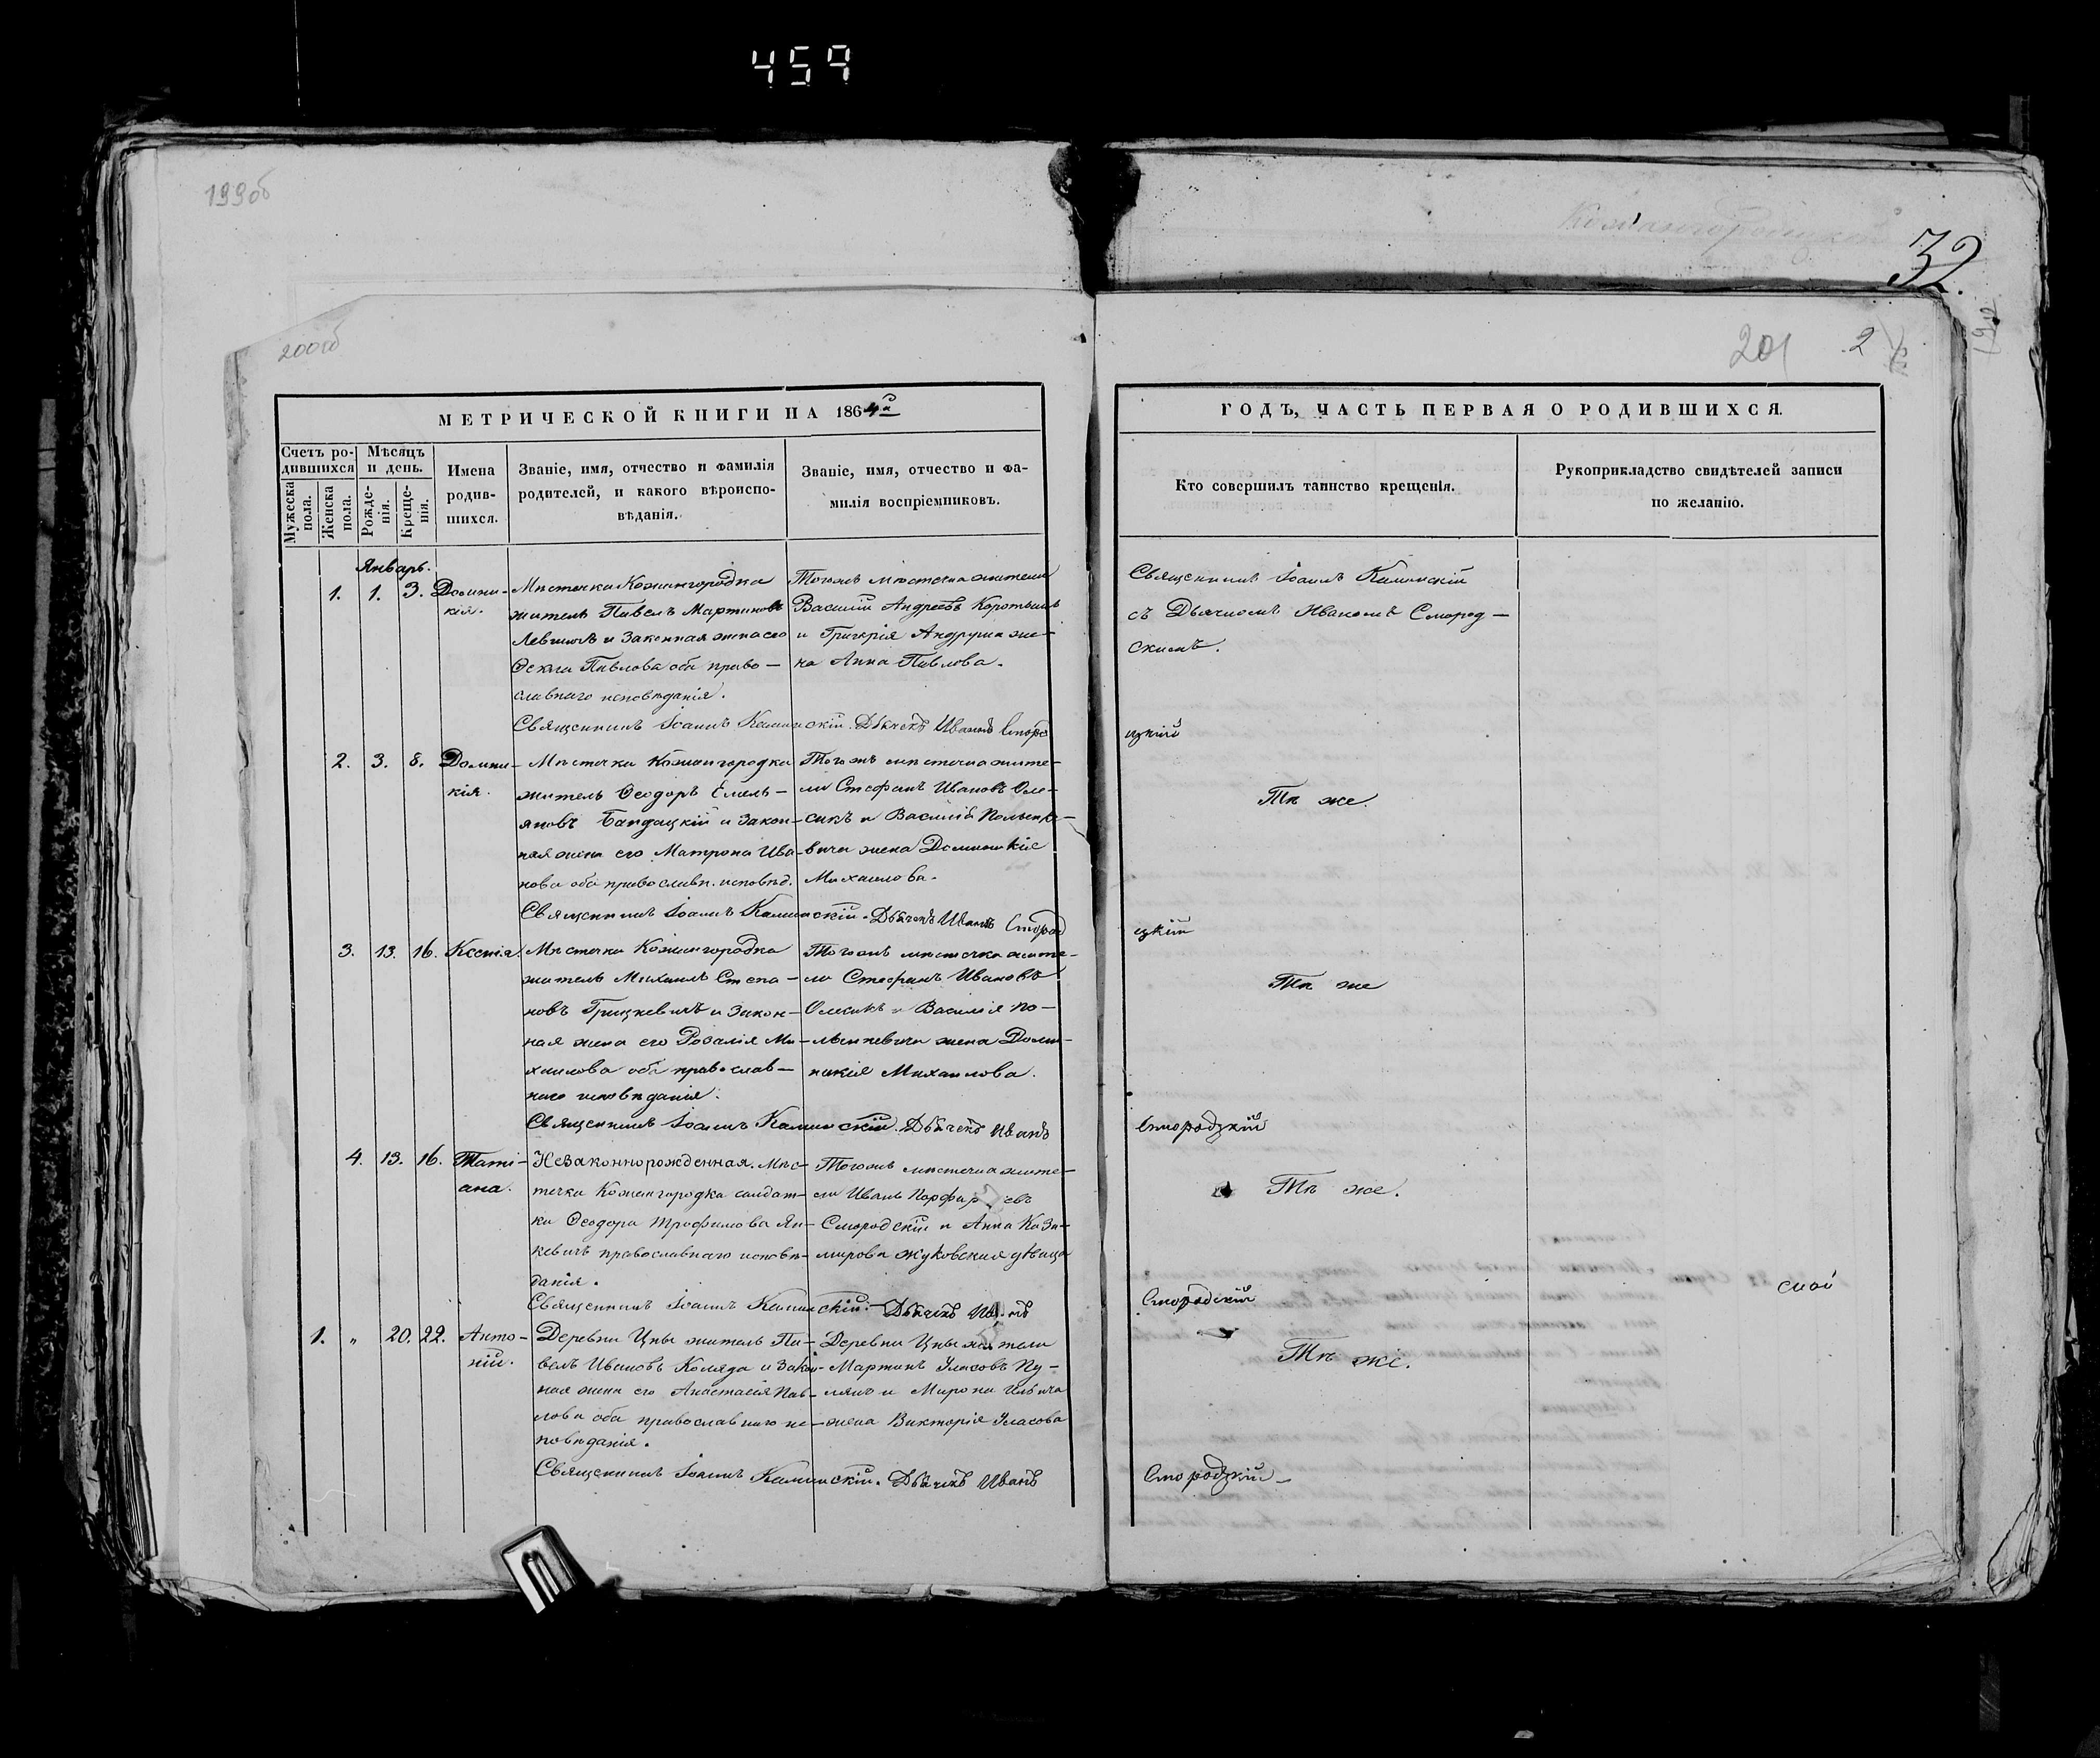 459
199об
Кожангородецкой
32.
200об
201
2
МЕТРИЧЕСКОЙ КНИГИ НА 1864й
ГОДЪ, ЧАСТЬ ПЕРВАЯ О РОДИВШИХСЯ.
Счетъ родившихся
Мужеска пола.
Женска пола.
Мѣсяцъ и день.
Рожденія.
Крещенія.
Имена родившихся.
Званіе, имя, отчество и фамилія родителей, и какого вѣроисповѣданія.
Званіе, имя, отчество и фамилія воспріемниковъ.
Кто совершилъ таинство крещенія.
Рукоприкладство свидѣтелей записи по желанію.
Январь.
1. 1. 3. Домни-
кія.
Мѣстечка Кожангородка
житель Павелъ Мартиновъ
Левшкъ и законная жена его
Ѳекла Павлова оба право-
славнаго исповѣданія.
Тогожъ мѣстечка жители
Василій Андреевъ Коротышъ
и Григорія Андруша же-
на Анна Павлова.
Священникъ Іоаннъ Каминскій
съ Дьячкомъ Иваномъ Смород-
скимъ.
Священникъ Іоаннъ Каминскій. Дьячекъ Иванъ Сморо
дзкій
2. 3. 8. Домни-
кія.
Мѣстечка Кожангородка
житель Ѳеодоръ Емель-
яновъ Бандацкій и закон-
ная жена его Матрона Ива-
нова оба православн. исповѣд.
Тогожъ мѣстечка жите-
ли Стефанъ Ивановъ Оле-
сикъ и Василія Полынке-
вича жена Домникія
Михаилова.
Тѣ же.
Священникъ Іоаннъ Каминскій. Дьячекъ Иванъ Смород
цкій
3. 13. 16. Ксенія.
Мѣстечка Кожангородка
житель Михаилъ Степа-
новъ Грицкевичъ и закон-
ная жена его Розалія Ми-
хаилова оба православ-
наго исповѣданія.
Тогожъ мѣстечка жите-
ли Стефанъ Ивановъ
Олесикъ и Василія По-
лынкевича жена Дом-
никія Михаилова.
Тѣ же
Священникъ Іоаннъ Каминскій. Дьячекъ Иванъ
Смородзкій
4. 13. 16. Таті-
ана.
Незаконнорожденная. Мѣс-
течка Кожангородка солдат-
ка Ѳеодора Трофимова Ян-
кевичъ православнаго исповѣ-
данія.
Тогожъ мѣстечка жите-
ли Иванъ Порфир евъ
Смородскій и Анна Кази-
мирова Жуковская дѣвица
Тѣ же.
Священникъ Іоаннъ Каминскій. Дьячекъ Иванъ
Смородскій
1. " 20. 22. Анто-
ній.
Деревни Цны житель Па-
велъ Ивановъ Коляда и закон-
ная жена его Анастасія Пав-
лова оба православнаго ис-
повѣданія.
Деревни Цны жители
Мартинъ Уласовъ Пу-
лякъ и Мирона Ильича
жена Викторія Уласова
Тѣ же.
Священникъ Іоаннъ Каминскій. Дьячекъ Иванъ
Смородзкій